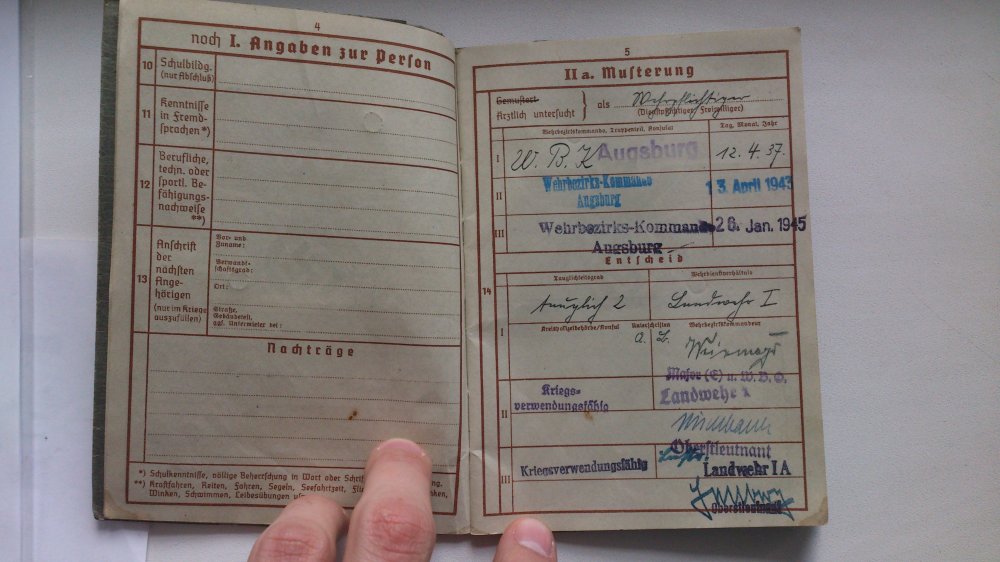 4
noch I. Angaben zur Person
10 Schulbildg.
(nur Abschluß)
11 Kenntnisse
in Fremd-
sprachen*)
12 Berufliche,
techn. oder
sportl. Be-
fähigungs-
nachweise
**)
13 Anschrift
der
nächsten
Ange-
hörigen
(nur im Kriege
auszufüllen)
Vor- und
Zuname:
Verwandt-
schaftsgrad:
Ort:
Straße,
Gebäudeteil,
ggf. Untermieter bei:
Nachträge
*) Schulkenntnisse, völlige Beherrschung in Wort oder
**) Kraftfahren, Reiten, Fahren, Segeln, Seefahrtzeit,
Winken, Schwimmen, Leibesübungen
5
IIa. Musterung
Gemustert
Ärztlich untersucht } als Wehrpflichtiger
(Dienstpflichtiger, Freiwilliger)
Wehrbezirkskommando, Truppenteil, Konsulat Tag, Monat, Jahr
I W. B. K Augsburg 12. 4. 37.
II Wehrbezirks-Kommando
Augsburg 13. April 1943
III Wehrbezirks-Kommando 26. Jan. 1945
Augsburg
Entscheid
14 Tauglichkeitsgrad Wehrdienstverhältnis
Tauglich 2 Landwehr I
I Kreispolizeibehörde/Konsul Unterschriften Wehrbezirkskommandeur
Major (E) u. W.B.O.
II Kriegs-
verwendungsfähig
Landwehr I
Oberstleutnant
III Kriegsverwendungsfähig
Landwehr I A
Oberstleutnant